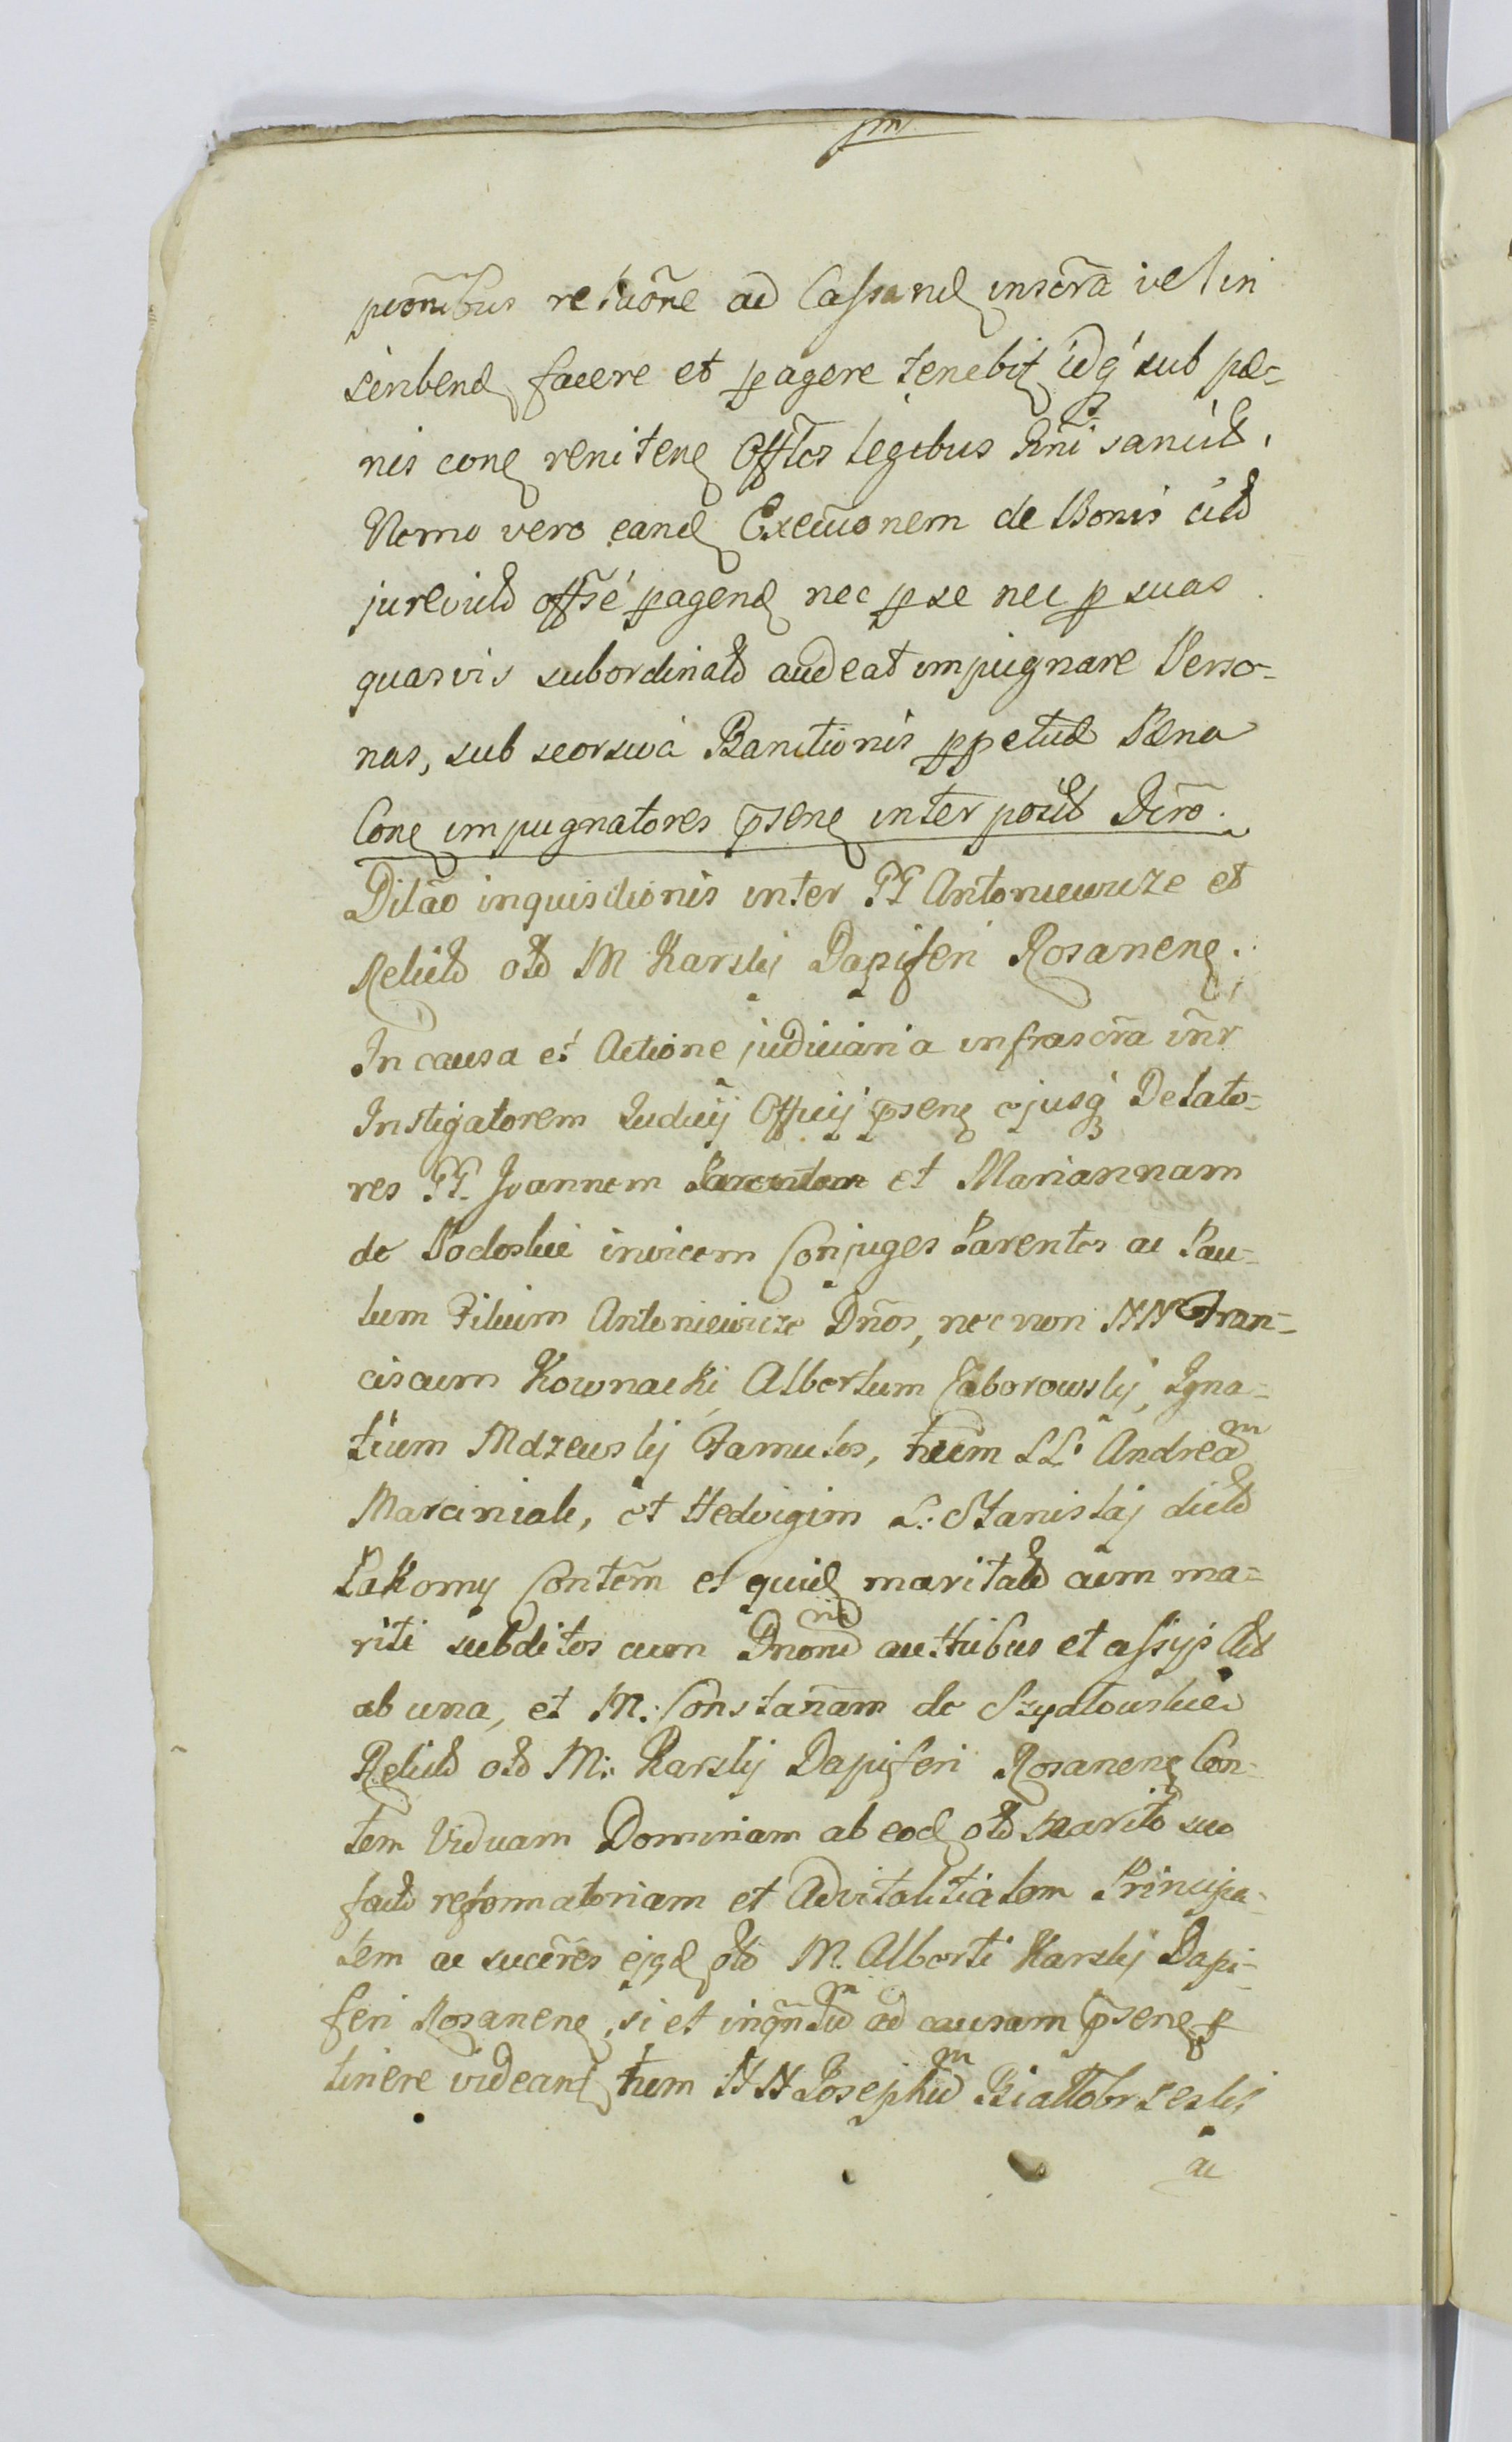 pm
pcõnibus reluõne ad Cassand inscrã vel in
scribend facere et pagere tenebit idq́ sub pæ-
nis conq renitenq Offles legibus Rñi sancitd.
Nemo vero eand Execuõnem de Bonis citd
jurevictd offsé pagend nec p se nec p suas
quasvis subordinatd audeat impugnare Perso-
nas, sub seorsiva Banitionis ppetuæ Pæna
Conq impugnatores p̃senq inter positd Dcro.
Dilao inquisitionis inter PP Antoniewicze et
Relictd otd M Karskij Dapiferi Rosanenq.
In causa et Actione judiciaria infrascrã iñr
Instigatorem Judicij Officij p̃senq ejusq́ Delato-
res PP. Joannem et Mariannam
de Podoskie invicem Conjuges Parentes ac Pau-
lum Filium Antoniewicze Dños, nec non NN Fran-
ciscum Kownacki, Albertum Zaborowskij, Igna-
tium Mdzewskij Famulos, tum LL. Andream
Marciniak, et Hedvigim L: Stanislaj dictd
Łakomy Contem̃ et quid maritatd cum ma-
riti subditos cum Dnõnu authibus et assijs Actd
ab una, et M. Constañam de Szydłowskie
Relictd otd M: Karskij Dapiferi Rosanenq Con-
tem Viduam Dominiam ab eod otd Marito suo
factd reformatoriam et Advitalitialem Principa-
lem ac succeres ejqd otd M. Alberti Karskij Dapi-
feri Rosanenq, si et inqñtum ad causam p̃senq p
tinere videant tum NN Josephum Białłobrzeskij
ac